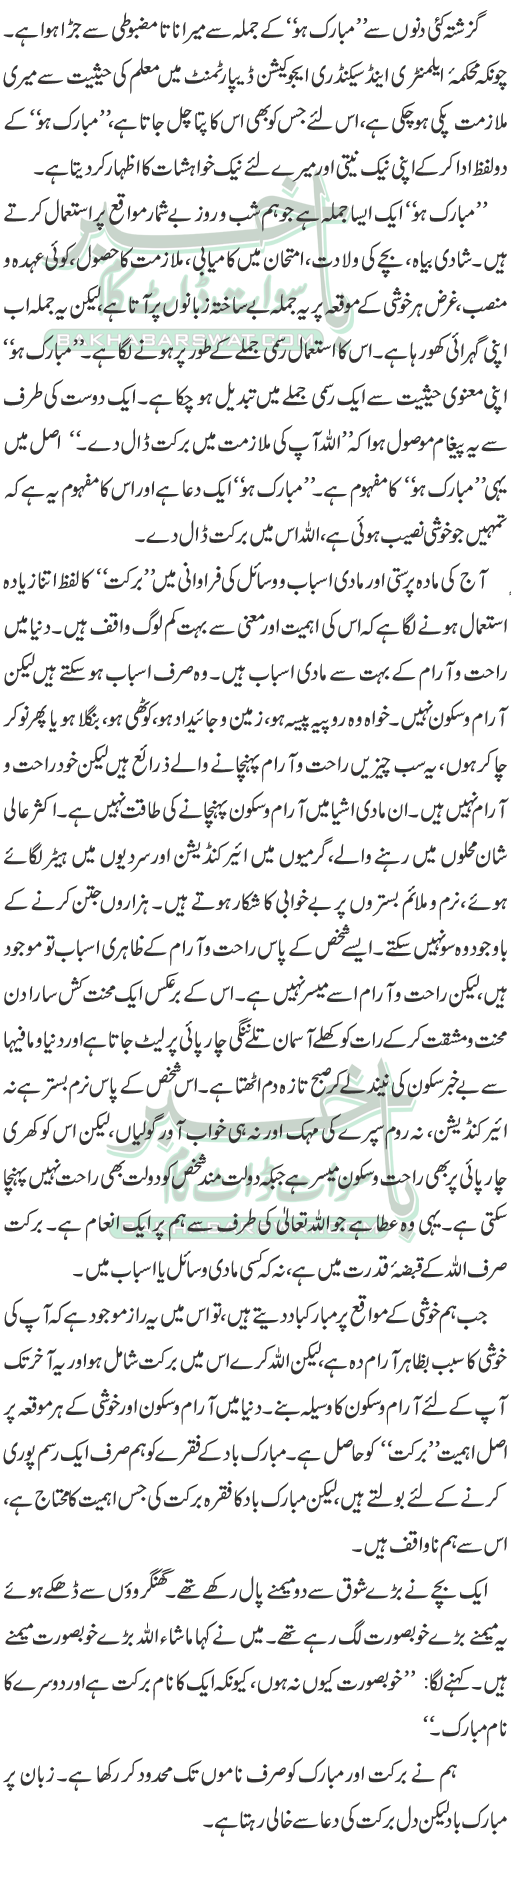 گزشتہ کئی دنوں سے ’’مبارک ہو‘‘ کے جملہ سے میرا ناتا مضبوطی سے جڑا ہوا ہے۔
چونکہ محکمۂ ایلمنٹری اینڈ سیکنڈری ایجوکیشن ڈیپارٹمنٹ میں معلم کی حیثیت سے میری
ملازمت پکی ہوچکی ہے، اس لئے جس کو بھی اس کا پتا چل جاتا ہے، ’’مبارک ہو‘‘ کے
دو لفظ ادا کرکے اپنی نیک نیتی اور میرے لئے نیک خواہشات کا اظہار کر دیتا ہے۔
’’مبارک ہو‘‘ ایک ایسا جملہ ہے جو ہم شب و روز بے شمار مواقع پر استعمال کرتے
ہیں۔ شادی بیاہ، بچے کی ولادت، امتحان میں کامیابی، ملازمت کا حصول، کوئی عہدہ و
منصب، غرض ہر خوشی کے موقعہ پر یہ جملہ بے ساختہ زبانوں پر آتا ہے، لیکن یہ جملہ اب
اپنی گہرائی کھو رہا ہے۔ اس کا استعمال رسمی جملے کے طور پر ہونے لگا ہے۔ ’’مبارک ہو‘‘
اپنی معنوی حیثیت سے ایک رسمی جملے میں تبدیل ہو چکا ہے۔ ایک دوست کی طرف
سے یہ پیغام موصول ہوا کہ ’’اللہ آپ کی ملازمت میں برکت ڈال دے۔‘‘ اصل میں
یہی ’’مبارک ہو‘‘ کا مفہوم ہے۔ ’’مبارک ہو‘‘ ایک دعا ہے اور اس کا مفہوم یہ ہے کہ
تمہیں جو خوشی نصیب ہوئی ہے، اللہ اس میں برکت ڈال دے۔
آج کی مادہ پرستی اور مادی اسباب و وسائل کی فراوانی میں ’’برکت‘‘ کا لفظ اتنا زیادہ
استعمال ہونے لگا ہے کہ اس کی اہمیت اور معنی سے بہت کم لوگ واقف ہیں۔ دنیا میں
راحت و آرام کے بہت سے مادی اسباب ہیں۔ وہ صرف اسباب ہو سکتے ہیں لیکن
آرام و سکون نہیں۔ خواہ وہ روپیہ پیسہ ہو، زمین و جائیداد ہو، کوٹھی ہو، بنگلا ہو یا پھر نوکر
چاکر ہوں، یہ سب چیزیں راحت و آرام پہنچانے والے ذرائع ہیں لیکن خود راحت و
آرام نہیں ہیں۔ ان مادی اشیا میں آرام و سکون پہنچانے کی طاقت نہیں ہے۔ اکثر عالی
شان محلوں میں رہنے والے، گرمیوں میں ائیر کنڈیشن اور سردیوں میں ہیٹر لگائے
ہوئے، نرم و ملائم بستروں پر بے خوابی کا شکار ہوتے ہیں۔ ہزاروں جتن کرنے کے
باوجود وہ سو نہیں سکتے۔ ایسے شخص کے پاس راحت و آرام کے ظاہری اسباب تو موجود
ہیں، لیکن راحت و آرام اسے میسر نہیں ہے۔ اس کے برعکس ایک محنت کش سارا دن
محنت و مشقت کرکے رات کو کھلے آسمان تلے ننگی چارپائی پر لیٹ جاتا ہے اور دنیا و مافیہا
سے بے خبر سکون کی نیند لے کر صبح تازہ دم اٹھتا ہے۔ اس شخص کے پاس نرم بستر ہے نہ
ائیر کنڈیشن، نہ روم سپرے کی مہک اور نہ ہی خواب آور گولیاں، لیکن اس کو کھری
چارپائی پر بھی راحت و سکون میسر ہے جبکہ دولت مند شخص کو دولت بھی راحت نہیں پہنچا
سکتی ہے۔ یہی وہ عطا ہے جو اللہ تعالیٰ کی طرف سے ہم پر ایک انعام ہے۔ برکت
صرف اللہ کے قبضۂ قدرت میں ہے، نہ کہ کسی مادی وسائل یا اسباب میں۔
جب ہم خوشی کے مواقع پر مبارکباد دیتے ہیں، تو اس میں یہ راز موجود ہے کہ آپ کی
خوشی کا سبب بظاہر آرام دہ ہے، لیکن اللہ کرے اس میں برکت شامل ہو اور یہ آخر تک
آپ کے لئے آرام و سکون کا وسیلہ بنے۔ دنیا میں آرام و سکون اور خوشی کے ہر موقعہ پر
اصل اہمیت ’’برکت‘‘ کو حاصل ہے۔ مبارک باد کے فقرے کو ہم صرف ایک رسم پوری
کرنے کے لئے بولتے ہیں، لیکن مبارک باد کا فقرہ برکت کی جس اہمیت کا محتاج ہے،
اس سے ہم ناواقف ہیں۔
ایک بچے نے بڑے شوق سے دو میمنے پال رکھے تھے۔ گھنگروؤں سے ڈھکے ہوئے
یہ میمنے بڑے خوبصورت لگ رہے تھے۔ میں نے کہا ماشاء اللہ بڑے خوبصورت میمنے
ہیں۔ کہنے لگا: ’’خوبصورت کیوں نہ ہوں، کیونکہ ایک کا نام برکت ہے اور دوسرے کا
نام مبارک۔‘‘
ہم نے برکت اور مبارک کو صرف ناموں تک محدود کر رکھا ہے۔ زبان پر
مبارک باد لیکن دل برکت کی دعا سے خالی رہتا ہے۔